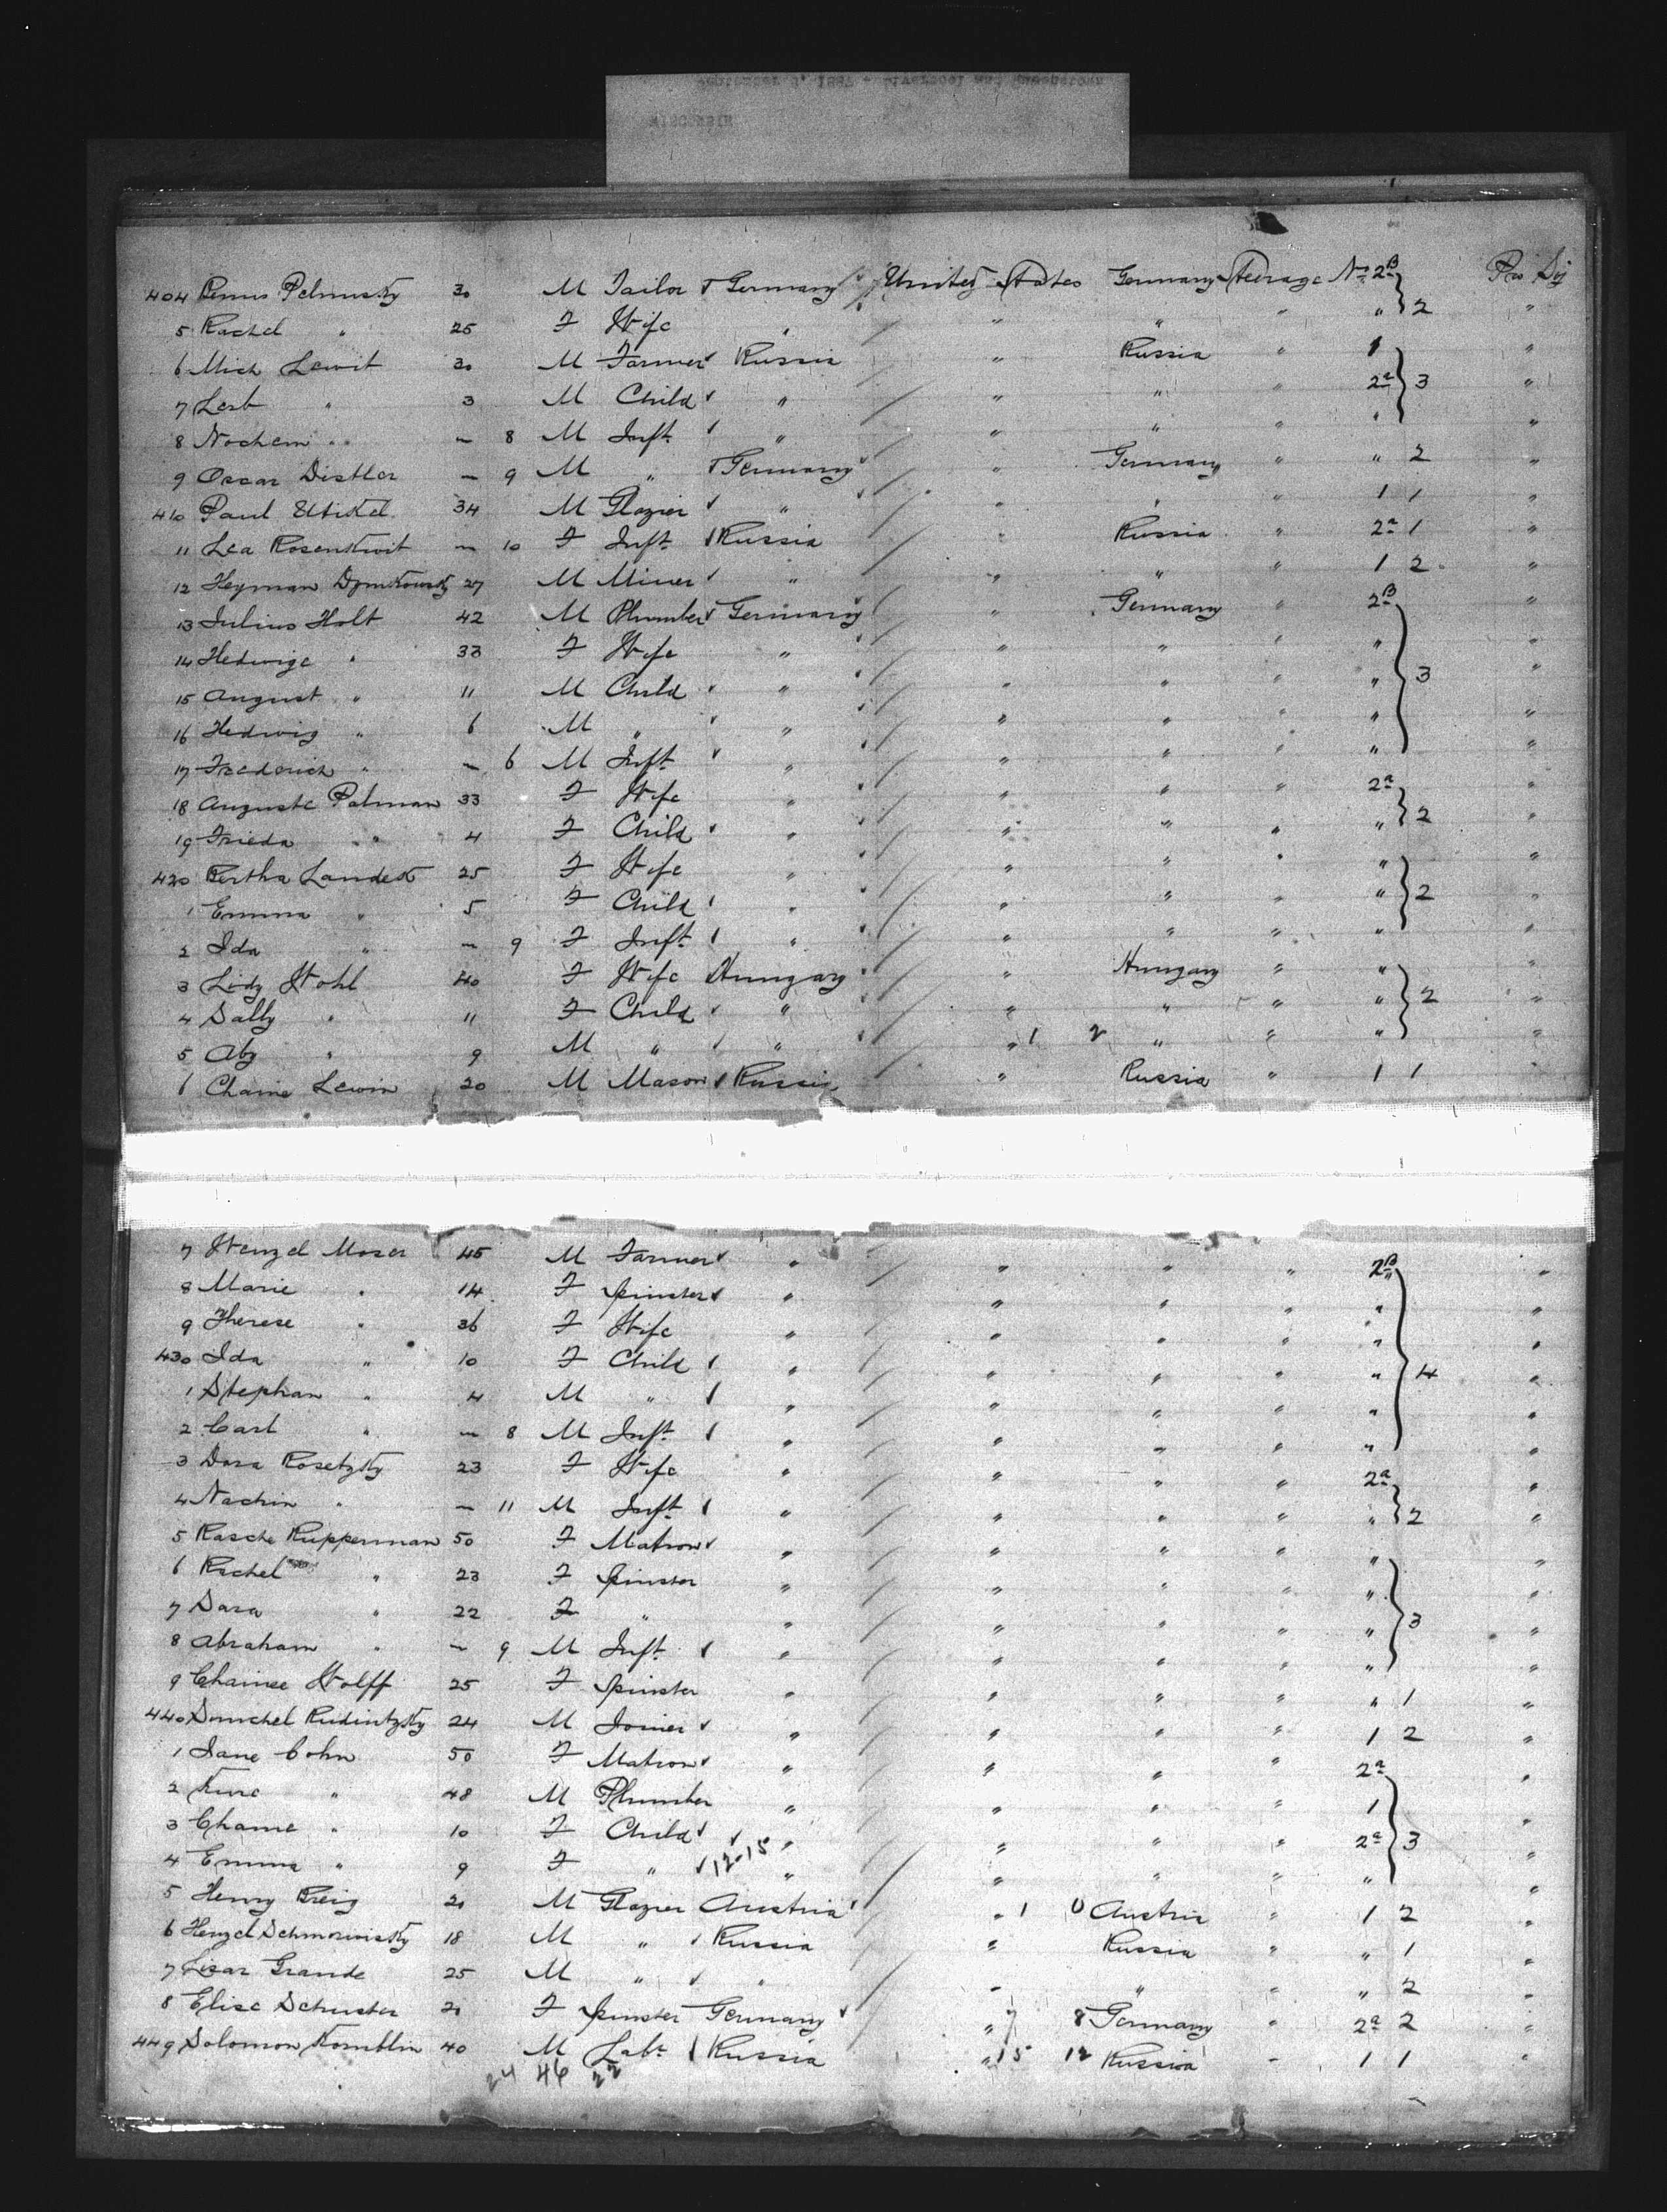 404 Benno Pelmusky 30 M Tailor Germany United States Germany Steerage No 2B } 2 Pro Soj
5 Rachel " 25 F Wife " " " " " "
6 Mich Lewit 30 M Farmer Russia " Russia " 1 "
7 Leib " 3 M Child " " " " 2a } 3 "
8 Nochem " — 8 M Inft " " " " " "
9 Oscar Distler — 9 M " Germany " Germany " " 2 "
410 Paul 34 M Glazier " " " " 1 1 "
11 Lea Rosenkwit — 10 F Inft Russia " Russia " 2a 1 "
12 Heyman 27 M Miner " " " " 1 2 "
13 Julius Holt 42 M Plumber Germany " Germany " 2B "
14 Hedwige " 33 F Wife " " " " " "
15 August " 11 M Child " " " " " } 3 "
16 Hedwig " 6 M " " " " " " "
17 Frederich " — 6 M Inft " " " " " "
18 Auguste Patman 33 F Wife " " " " 2a "
19 Frieda " 4 F Child " " " " " } 2 "
420 Bertha Landek 25 F Wife " " " " " "
1 Emma " 5 F Child " " " " " } 2 "
2 Ida " — 9 F Inft " " " " " "
3 Lidy Wohl 40 F Wife Hungary " Hungary " " "
4 Sally " 11 F Child " " " " " } 2 "
5 Aby " 9 M " " " 1 2 " " " "
6 Chaine Lewin 20 M Mason Russia " Russia " 1 1 "
7 Wenzel Moser 45 M Farmer " " " " 2B "
8 Marie " 14 F Spinster " " " " " "
9 Therese " 36 F Wife " " " " " "
430 Ida " 10 F Child " " " " " } 4 "
1 Stephan " 4 M " " " " " " "
2 Carl " — 8 M Inft " " " " " "
3 Dora Rosetzky 23 F Wife " " " " 2a "
4 Nachin " — 11 M Inft " " " " " } 2 "
5 Rasche Kupperman 50 F Matron " " " " " "
6 Rachel " 23 F Spinster " " " " " "
7 Sara " 22 F " " " " " " } 3 "
8 Abraham " — 9 M Inft " " " " " "
9 Chainee Wolff 25 F Spinster " " " " " 1 "
440 Smuchel Rudintzky 24 M Joiner " " " " 1 2 "
1 Jane Cohn 50 F Matron " " " " 2a "
2 " 48 M Plumber " " " " 1 "
3 Chame " 10 F Child " " " " 2a } 3 "
4 Emma " 9 F " 12-15 " " " " " "
5 Henry Breig 21 M Glazier Austria " 1 0 Austria " 1 2 "
6 Henzel Schmorwisky 18 M " Russia " Russia " " 1 "
7 Lisar Grande 25 M " " " " " " 2 "
8 Elise Schuster 21 F Spinster Germany " 7 8 Germany " 2a 2 "
449 Solomon Komblin 40 M Labr Russia " 15 12 Russia " 1 1 "
24 46 22